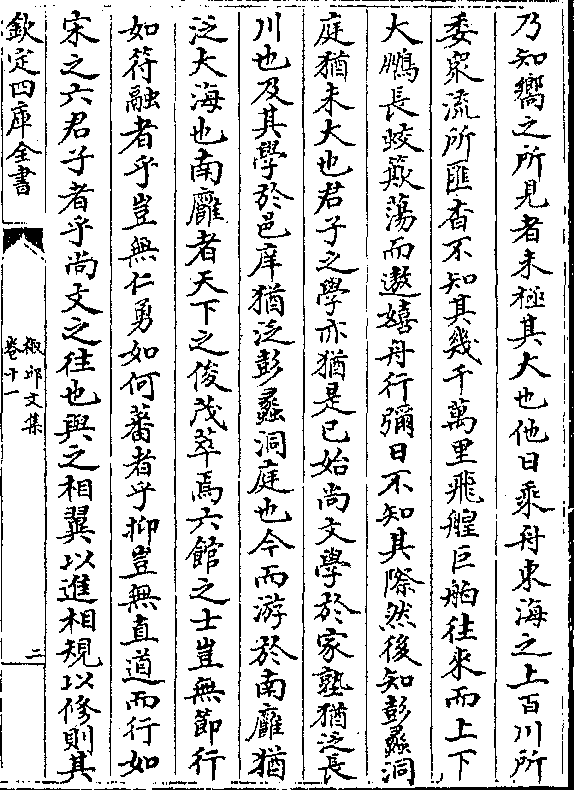 乃知嚮之所見者未極其大也他日乘舟東海之上百川所
委衆流所匯杳不知其幾千萬里飛艎巨舶往來而上下
大鵬長蛟簸蕩而遨嬉舟行彌日不知其際然後知彭蠡洞
庭猶未大也君子之學亦猶是已始尚文學於家塾猶泛長
川也及其學於邑庠猶泛彭蠡洞庭也今而游於南廱猶
泛大海也南廱者天下之俊茂萃焉六館之士豈無節行
如符融者乎豈無仁勇如何蕃者乎抑豈無直道而行如
宋之六君子者乎尚文之往也與之相翼以進相規以修則其
欽定四庫全書
文集
卷十一
二